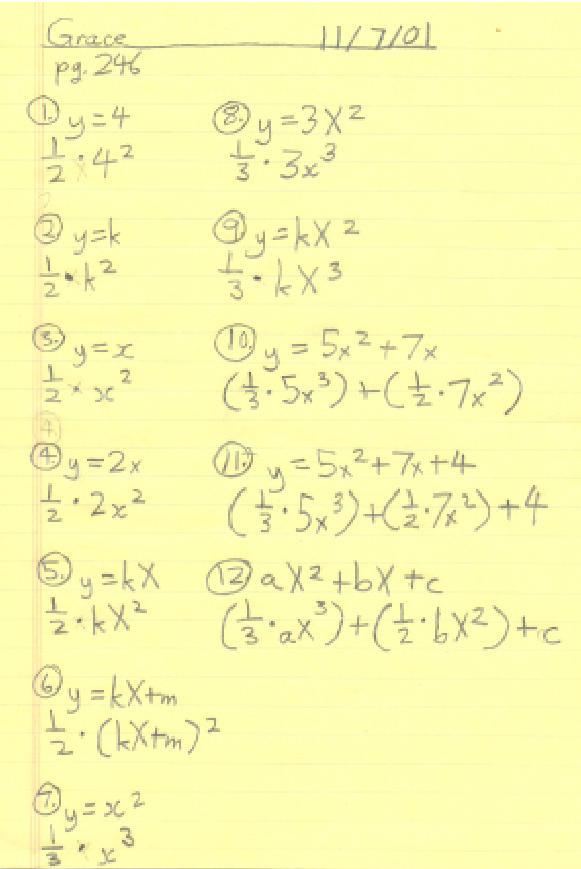 Grace 11/7/01
pg. 246
① y=4
1/2 · 4²
② y=k
1/2 · k²
③ y=x
1/2 × x²
4.
④ y=2x
1/2 · 2x²
⑤ y=kX
1/2 · kX²
⑥ y=kX+m
1/2 · (kX+m)²
⑦ y=x²
1/3 · x³
⑧ y=3X²
1/3 · 3x³
⑨ y=kX²
1/3 · kX³
⑩ y = 5x²+7x
(1/3 · 5x³)+(1/2 · 7x²)
⑪ y=5x²+7x+4
(1/3 · 5x³)+(1/2 · 7x²)+4
⑫ aX²+bX+c
(1/3 · ax³)+(1/2 · bX²)+c